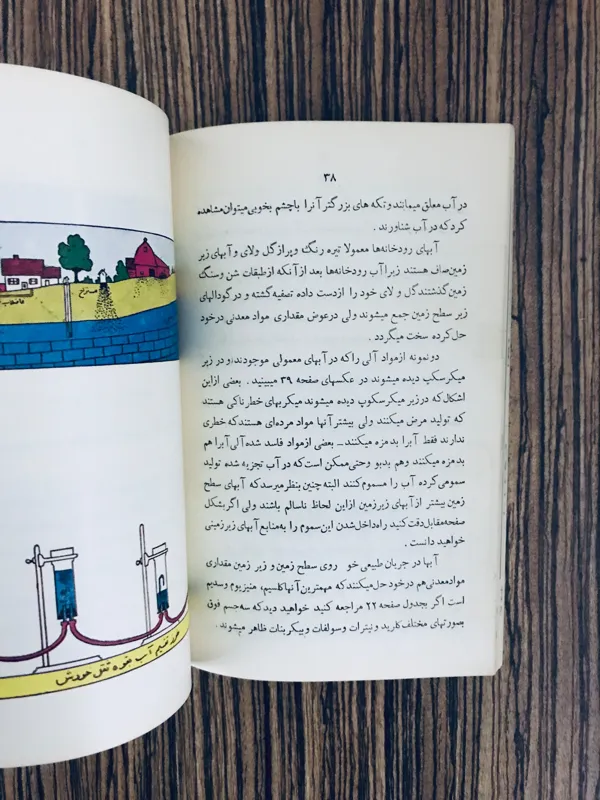 ۳۸
در آب معلق میمانند و تکه های بزرگتر آنرا باچشم بخوبی میتوان مشاهده
کرد که در آب شناورند .
آبهای رودخانه‌ها معمولا تیره رنگ و پر از گل ولای و آبهای زیر
زمین صاف هستند زیرا آب رودخانه‌ها بعد از آنکه از طبقات شن وسنگ
زمین گذشتند گل و لای خود را ازدست داده تصفیه گشته و در گودالهای
زیر سطح زمین جمع میشوند ولی درعوض مقداری مواد معدنی درخود
حل کرده سخت میگردد .
دو نمونه ازمواد آلی را که در آبهای معمولی موجودند و در زیر
میکرسکپ دیده میشوند در عکسهای صفحه ۳۹ میبینید . بعضی از این
اشکال که در زیر میکرسکوپ دیده میشوند میکربهای خطرناکی هستند
که تولید مرض میکنند ولی بیشتر آنها مواد مرده‌ای هستند که خطری
ندارند فقط آبرا بدمزه میکنند ـ بعضی ازمواد فاسد شده آلی آبرا هم
بدمزه میکنند وهم بدبو وحتی ممکن است که در آب تجزیه شده تولید
سمومی کرده آب را مسموم کنند البته چنین بنظر میرسد که آبهای سطح
زمین بیشتر از آبهای زیرزمین ازاین لحاظ ناسالم باشند ولی اگر بشکل
صفحه مقابل دقت کنید راه داخل شدن این سموم را به منابع آبهای زیرزمینی
خواهید دانست .
آبها در جریان طبیعی خو روی سطح زمین و زیر زمین مقداری
مواد معدنی هم درخود حل میکنند که مهمترین آنها کلسیم، منیزیوم و سدیم
است اگر بجدول صفحه ۲۲ مراجعه کنید خواهید دید که سه جسم فوق
بصورتهای مختلف کلرید و نیترات و سولفات و بیکربنات ظاهر میشوند .
آب بقوه ثقل خودش